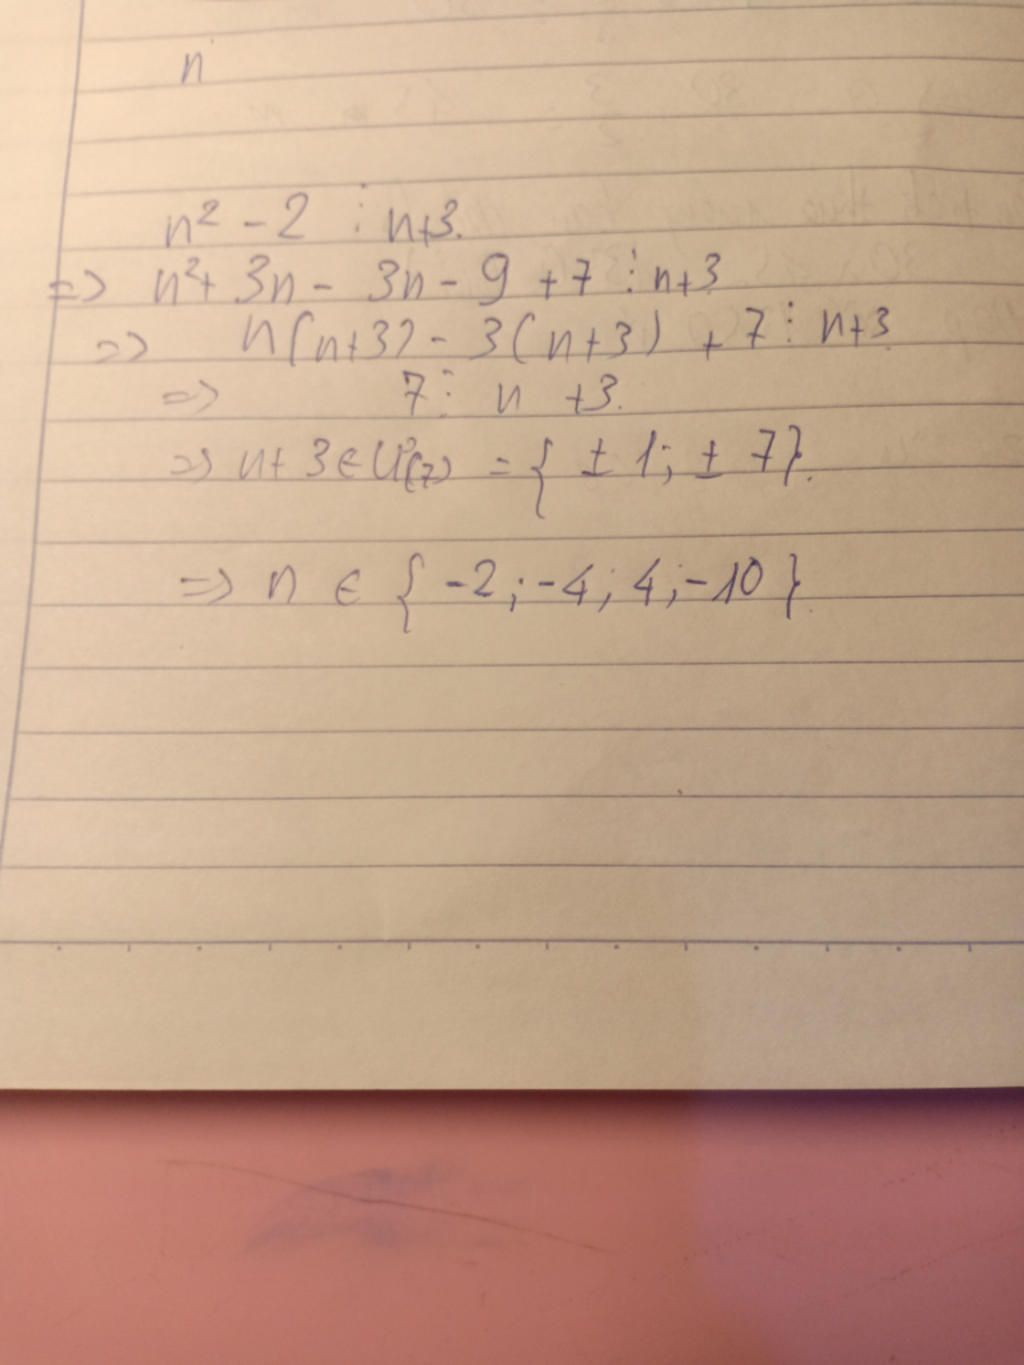 n
n² - 2 ⋮ n+3.
=> n²+ 3n - 3n - 9 + 7 ⋮ n+3
=> n(n+3) - 3(n+3) + 7 ⋮ n+3
=> 7 ⋮ n +3.
=> n+ 3 ∈ Ư(7) = { ± 1; ± 7}.
=> n ∈ { -2 ; -4 ; 4 ; -10 }.